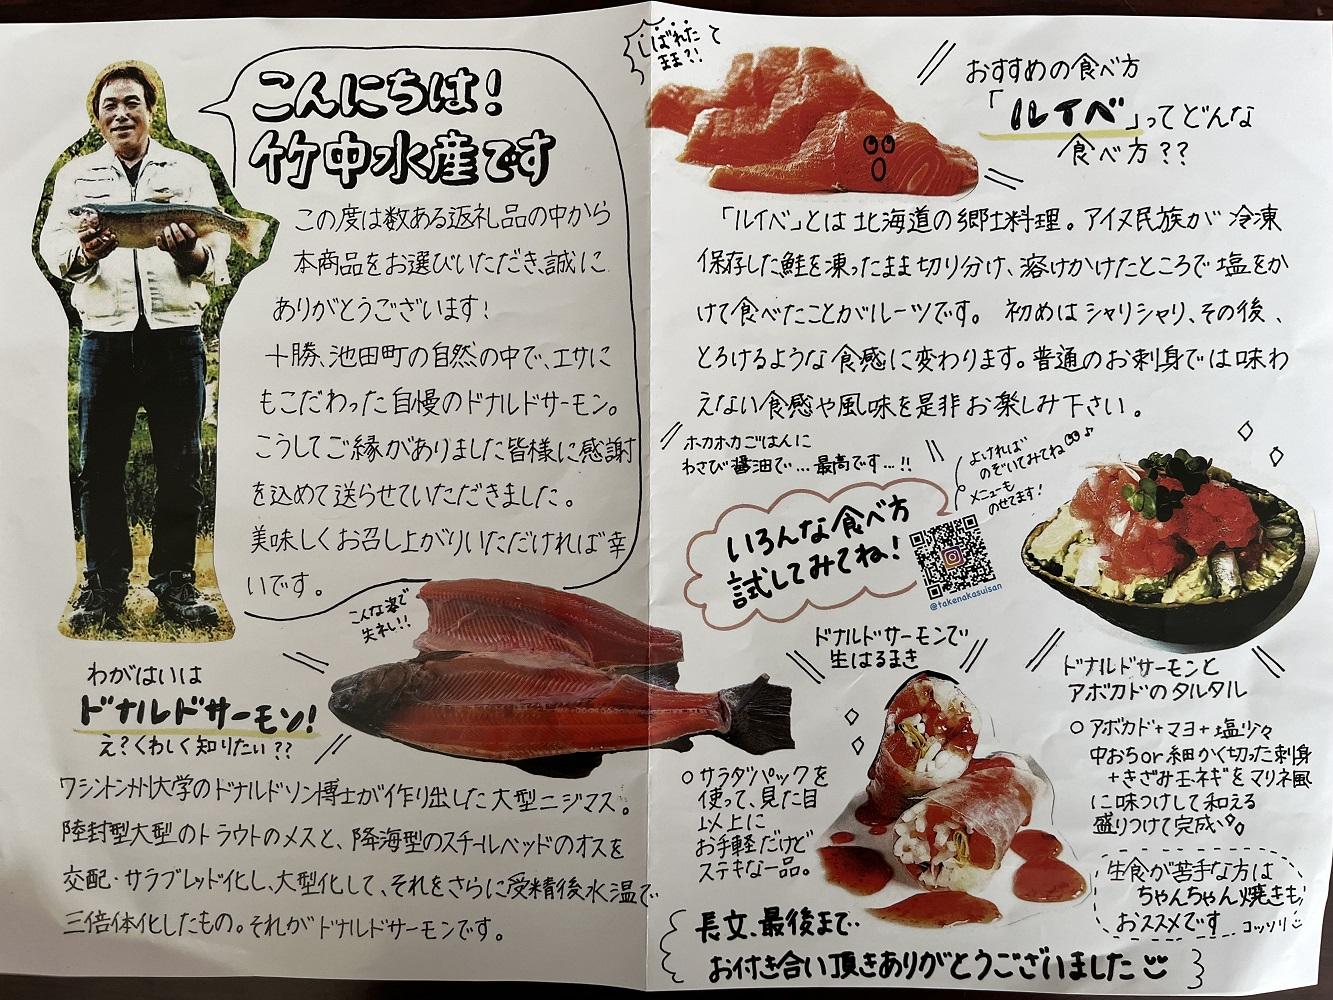 こんにちは！
竹中水産です
この度は数ある返礼品の中から
本商品をお選びいただき、誠に
ありがとうございます！
十勝、池田町の自然の中で、エサに
もこだわった自慢のドナルドサーモン。
こうしてご縁がありました皆様に感謝
を込めて送らせていただきました。
美味しくお召し上がりいただければ幸
いです。
こんな姿で
失礼!!
わがはいは
ドナルドサーモン!
え？くわしく知りたい??
ワシントン州大学のドナルドソン博士が作り出した大型ニジマス。
陸封型大型のトラウトのメスと、降海型のスチールヘッドのオスを
交配・サラブレッド化し、大型化して、それをさらに受精後水温で
三倍体化したもの。それがドナルドサーモンです。
しばれた
まま?!
て
おすすめの食べ方
「ルイベ」ってどんな
食べ方??
「ルイベ」とは北海道の郷土料理。アイヌ民族が冷凍
保存した鮭を凍ったまま切り分け、溶けかけたところで塩をか
けて食べたことがルーツです。初めはシャリシャリ、その後、
とろけるような食感に変わります。普通のお刺身では味わ
えない食感や風味を是非お楽しみ下さい。
ホカホカごはんに
わさび醤油で…最高です…!!
よければ
のぞいてみてね♪
メニューも
のせてます!
いろんな食べ方
試してみてね！
@takenakasuisan
ドナルドサーモンで
生はるまき
○サラダパックを
使って、見た目
以上に
お手軽だけど
ステキな一品。
ドナルドサーモンと
アボカドのタルタル
○アボカド+マヨ+塩少々
中おちor細かく切った刺身
+きざみ玉ネギをマリネ風
に味つけして和える
盛りつけて完成
生食が苦手な方は
ちゃんちゃん焼きも
おススメです コッソリ
長文、最後まで
お付き合い頂きありがとうございました